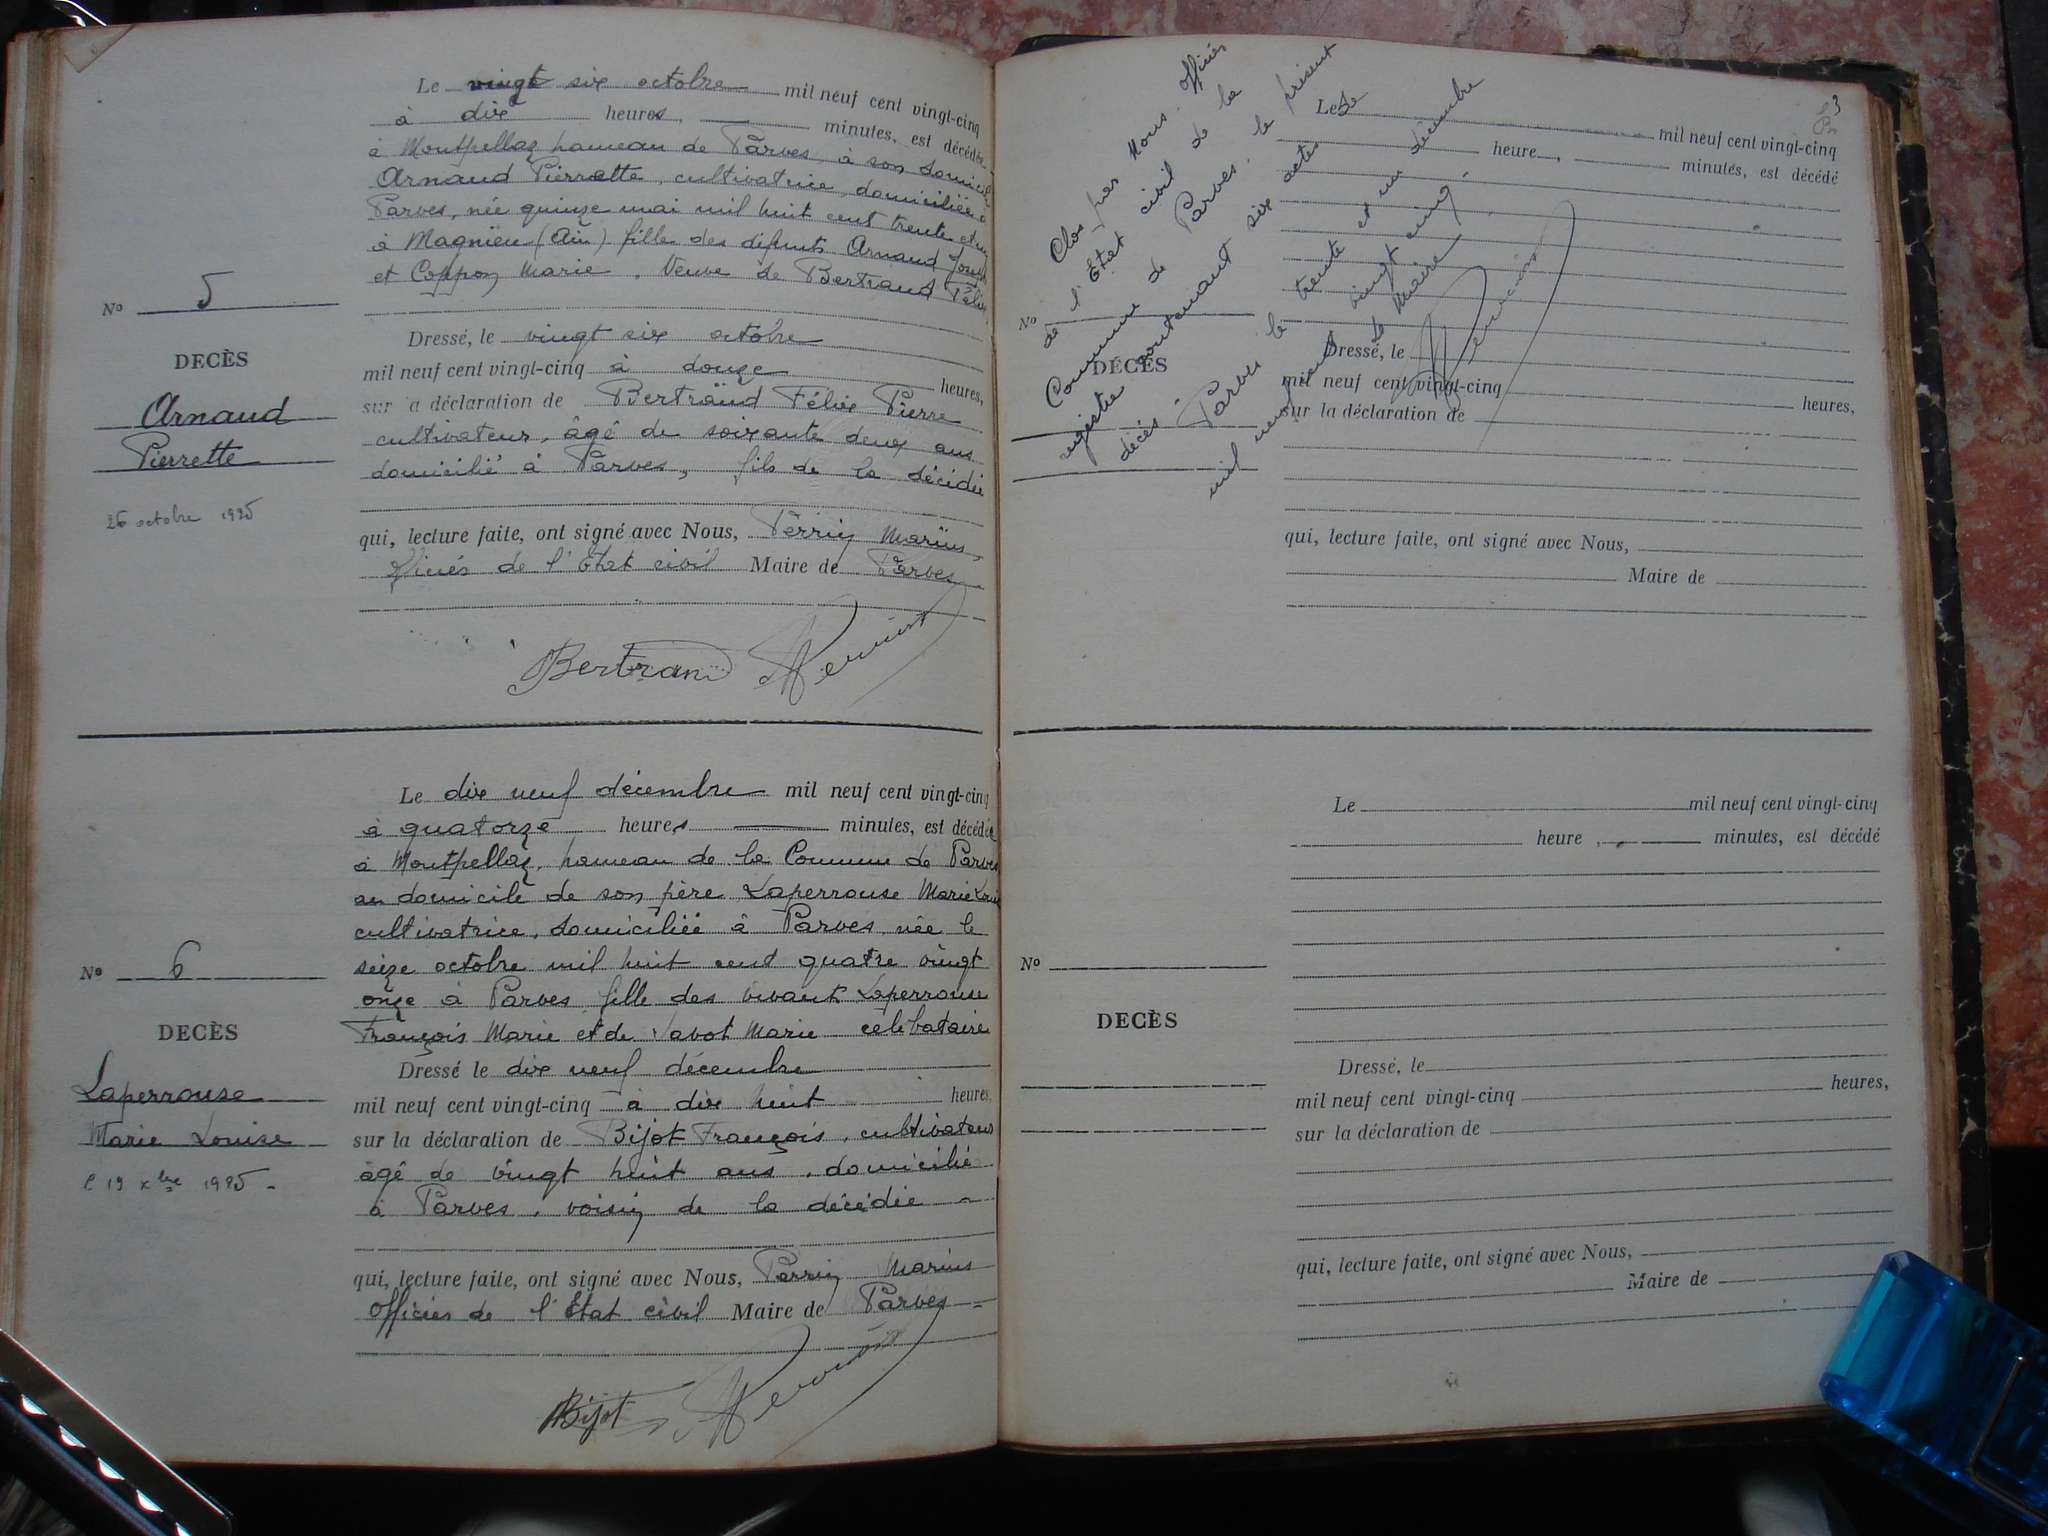 Le vingt six octobre mil neuf cent vingt-cinq
à dix heures, minutes, est décédée
à Montpellaz hameau de Parves, à son domicile
Arnaud Pierrette, cultivatrice, domiciliée à
Parves, née quinze mai mil huit cent trente et un
à Magnieu (Ain) fille des défunts Arnaud Joseph
et Coppoz Marie. Veuve de Bertrand Félix
No 5
DECÈS
Arnaud
Pierrette
26 octobre 1925
Dressé, le vingt six octobre
mil neuf cent vingt-cinq à douze heures,
sur la déclaration de Bertrand Félix Pierre
cultivateur, âgé de soixante deux ans
domicilié à Parves, fils de la décédée
qui, lecture faite, ont signé avec Nous, Perrin Marius,
officier de l'Etat civil Maire de Parves
Bertrand
Le dix neuf décembre mil neuf cent vingt-cinq
à quatorze heures minutes, est décédée
à Montpellaz, hameau de la Commune de Parves
au domicile de son père Laperrouse Marie Louise
cultivatrice, domiciliée à Parves, née le
seize octobre mil huit cent quatre vingt
onze à Parves fille des vivants Laperrouse
François Marie et de Savot Marie célibataire
No 6
DECÈS
Laperrouse
Marie Louise
le 19 xbre 1925 -
Dressé le dix neuf décembre
mil neuf cent vingt-cinq à dix huit heures,
sur la déclaration de Bijot François, cultivateur
âgé de vingt huit ans, domicilié
à Parves, voisin de la décédée -
qui, lecture faite, ont signé avec Nous, Perrin Marius
Officier de l'Etat civil Maire de Parves =
Bijot
3
Clos par Nous, officier
de l'Etat civil de la
Commune de Parves, le présent
registre contenant six actes de
décès - Parves le trente et un décembre
mil neuf cent vingt cinq -
Le Maire
Le mil neuf cent vingt-cinq
heure, minutes, est décédé
No
DÉCÈS
Dressé, le
mil neuf cent vingt-cinq heures,
sur la déclaration de
qui, lecture faite, ont signé avec Nous,
Maire de
Le mil neuf cent vingt-cinq
heure, minutes, est décédé
No
DECÈS
Dressé, le
mil neuf cent vingt-cinq heures,
sur la déclaration de
qui, lecture faite, ont signé avec Nous,
Maire de